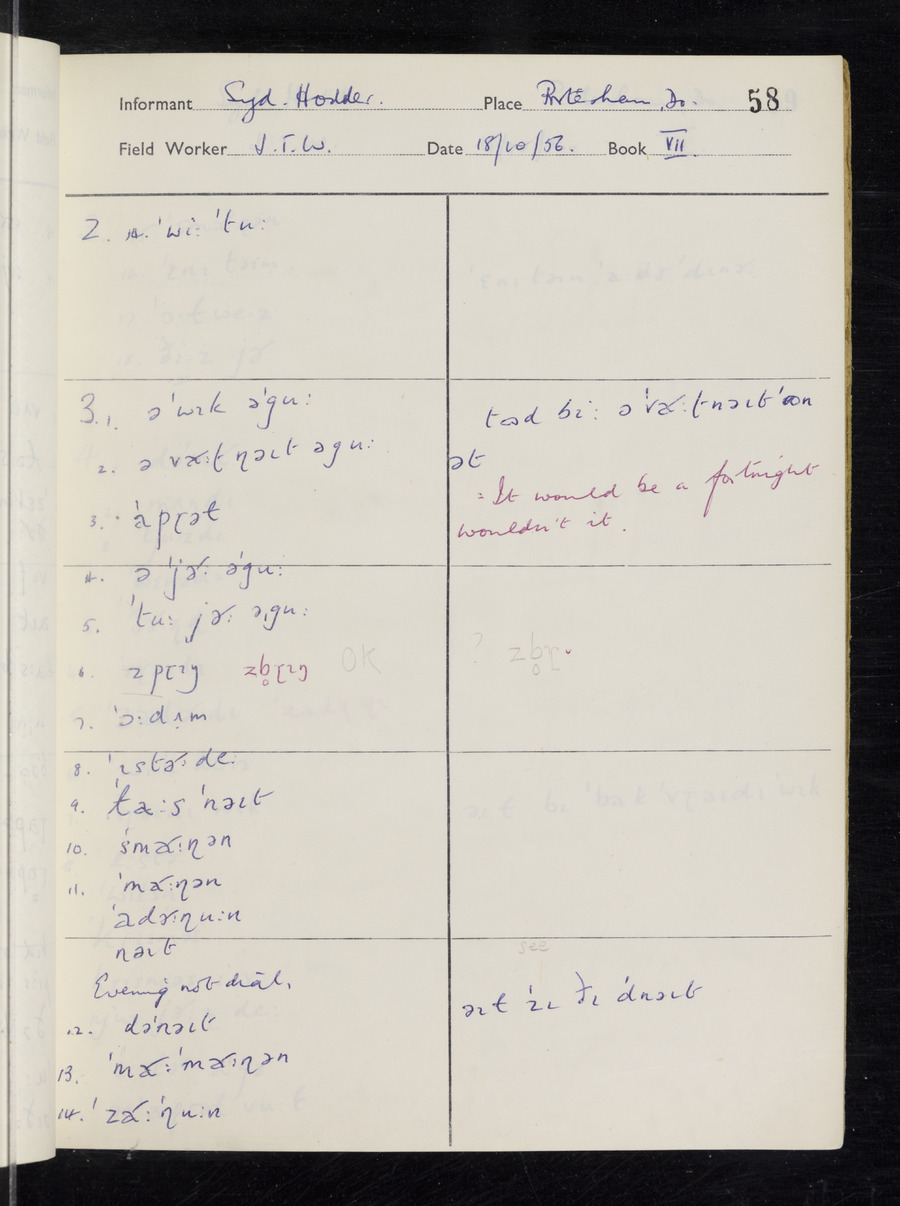 Informant Syd. Hodder. Place Portesham, Do. 58
Field Worker J.T.W. Date 18/10/56. Book VII
2. 14. ˈwiː ˈtuː
3.1. ə ˈwɪk əˈguː
2. ə vɚːtɳəɪt əguː
3. ˈapɽət
4. ə ˈjɚː əˈguː
5. ˈtuː jɚː əˌguː
6. zpɽɪŋ zb̥ɽɪŋ OK
7. ˈɔːdəm
8. ˈɪstɚːdeː
9. ˈtaːs ˈnəɪt
10. ˈsmɚːɳən
11. ˈmɚːɳən
ˈadɚːɳuːn
nəɪt
Evening not dial.
12. dəˈnəɪt
13. ˈmɚː ˈmɚːɳən
14. ˈzɚːˈɳuːn
tʊd biː ə ˈvɚːtnəɪt ˈʊn
ət
= It would be a fortnight
wouldn't it.
? zb̥ɽ
see
əɪt ˈɪz ðɪ ˈdnəɪt